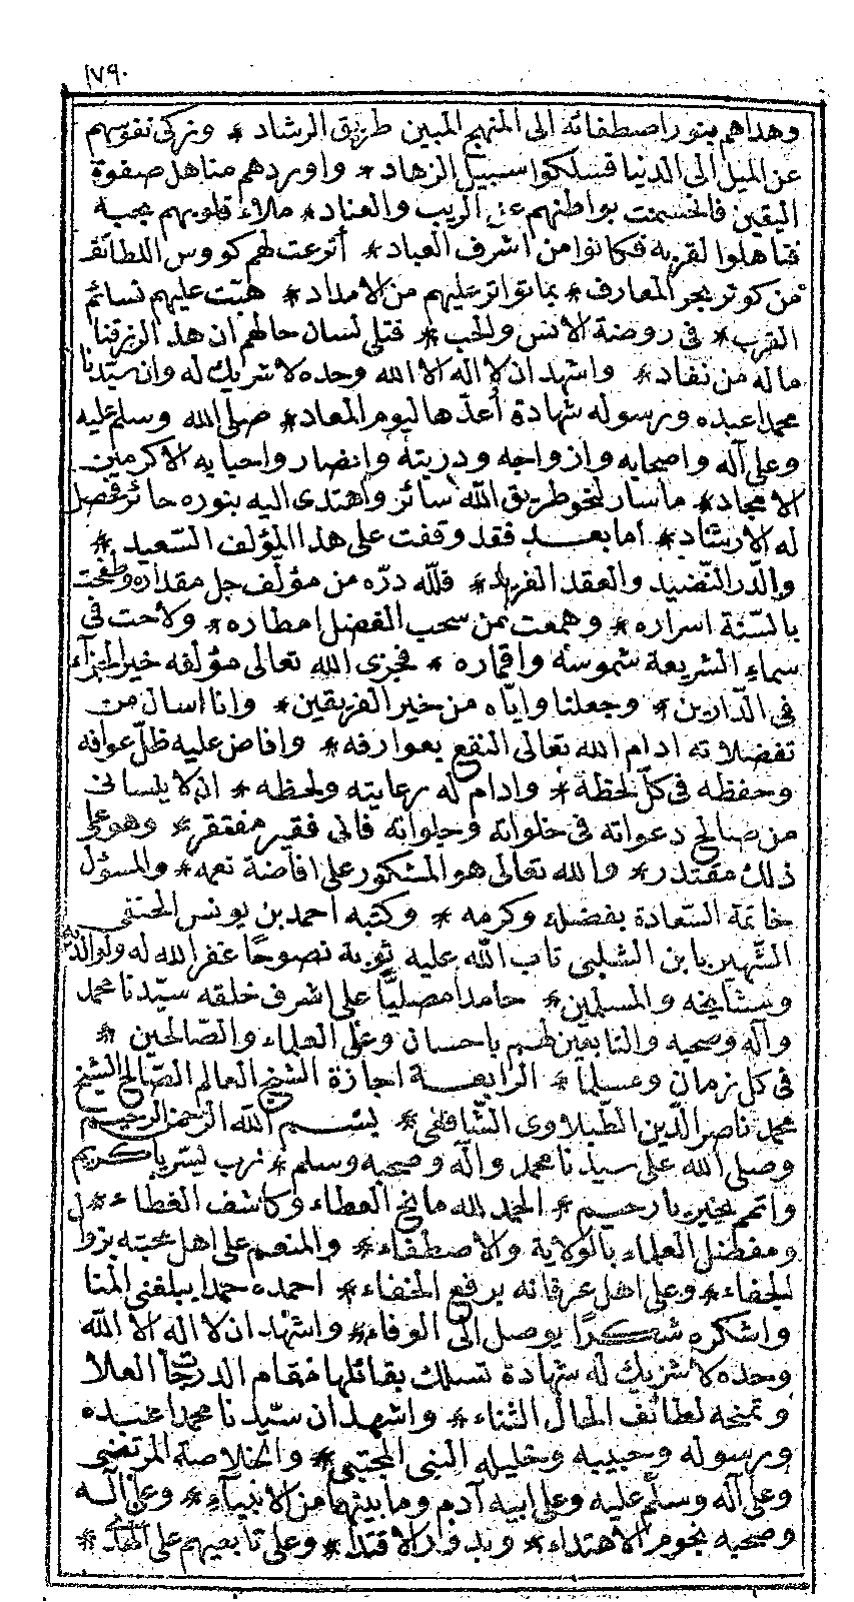 ١٧٩٠
وهداهم بنور اصطفائه الى المنهج المبين طريق الرشاد * وزكى نفوسهم
عن الميل الى الدنيا فسلكوا سبيل الزهاد * واوردهم مناهل صفوة
اليقين فانحسمت بواطنهم عن الريب والعناد * ملاء قلوبهم بحبه
فتأهلوا لقربه فكانوا من اشرف العباد * أترعت لهم كووس اللطائف
من كوثر بحر المعارف * بما تواتر عليهم من الامداد * هبّت عليهم نسائم
القرب * فى روضة الانس والحب * فتلى لسان حالهم ان هذا الرزقنا
ماله من نفاد * واشهد ان لا اله الا الله وحده لا شريك له وان سيّدنا
محمدا عبده ورسوله شهادة أعدّها ليوم المعاد * صلى الله وسلم عليه
وعلى آله واصحابه وازواجه وذريته وانصاره واحبابه الاكرمين
الامجاد * ماسار لنحو طريق الله سائر واهتدى اليه بنوره حائر فحصل
له الارشاد * اما بعد فقد وقفت على هذا المؤلف السّعيد *
والدّر النّضيد والعقد الفريد * فللّه درّه من مؤلّف جل مقداره وطفحت
بالسّنة اسراره * وهمعت من سحب الفضل امطاره * ولاحت فى
سماء الشريعة شموسه واقماره * فجزى الله تعالى مؤلفه خير الجزاء
فى الدّارين * وجعلنا وايّاه من خير الفريقين * وانا اسال من
تفضلاته ادام الله تعالى النفع بعوارفه * وافاض عليه ظلّ عوافه
وحفظه فى كلّ لحظة * وادام له رعايته ولحظه * ان لا ينسانى
من صالح دعواته فى خلواته وجلواته فانى فقير مفتقر * وهو على
ذلك مقتدر * والله تعالى هو المشكور على افاضة نعمه * والمسؤل
خاتمة السّعادة بفضله وكرمه * وكتبه احمد بن يونس الحنفى
الشّهير بابن الشلبى تاب الله عليه توبة نصوحًا غفر الله له ولوالديه
ومشايخه والمسلمين * حامدا مصليًّا على اشرف خلقه سيّدنا محمد
وآله وصحبه والتابعين لهم باحسان وعلى العلماء والصّالحين *
فى كل زمان ومسلما * الرابعة اجازة الشيخ العالم الصّالح الشيخ
محمد ناصر الدّين الطّبلاوى الشّافعى * بسم الله الرّحمن الرحيم
وصلى الله على سيدنا محمد وآله وصحبه وسلم * رب يسّر يا كريم
واتمم بخير يا رحيم * الحمد لله مانح العطاء وكاشف الغطاء *
ومفضل العلماء بالولاية والاصطفاء * والمنعم على اهل محبته بزوال
الجفاء * وعلى اهل عرفانه برفع الخفاء * احمده حمدا يبلغنى المنا
واشكره شكرًا يوصل الى الوفاء * واشهد ان لا اله الا الله
وحده لا شريك له شهادة تسلك بقائلها مقام الدرجات العلا
وتمنحه لطائف الحال الثناء * واشهد ان سيّدنا محمدا عبده
ورسوله وحبيبه وخليله النبى المجتبى * والخلاصة المرتضى
وعلى آله وسلّم عليه وعلى ابيه آدم وما بينهما من الانبيآء * وعلى آله
وصحبه نجوم الاهتداء * وبدور الاقتداء * وعلى تابعيهم على الهدى *